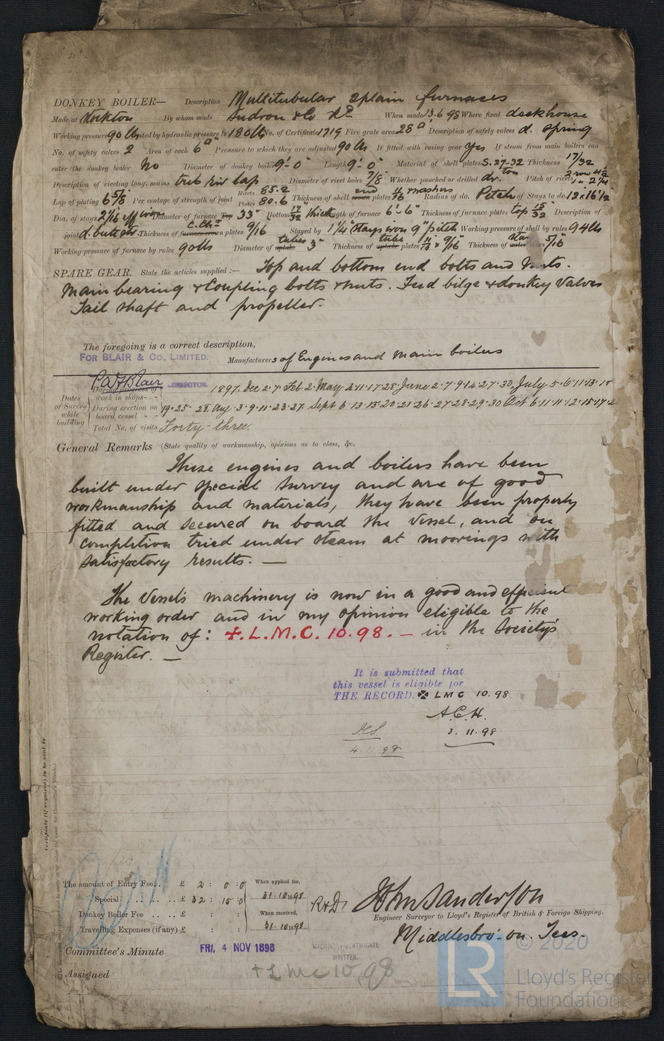 DONKEY BOILER— Description Multitubular 2 plain furnaces
Made at Stockton By whom made Hudron & Co Ld When made 3.6.98 Where fixed deckhouse
Working pressure 90 lbs tested by hydraulic pressure to 180 lbs No. of Certificate 1719 Fire grate area 28 Description of safety valves d. Spring
No. of safety valves 2 Area of each 6 Pressure to which they are adjusted 90 lbs If fitted with easing gear yes If steam from main boilers can
enter the donkey boiler No Diameter of donkey boiler 9'-0" Length 9'-0" Material of shell plates S. 27-32 Thickness 17/32
Description of riveting long. seams treb riv lap Diameter of rivet holes 7/8 Whether punched or drilled dr. Pitch of rivets
Lap of plating 6 5/8 Per centage of strength of joint Rivets 85.2 Plates 80.6 Thickness of shell end plates Radius of do. Pitch of Stays to do. 13 x 16 1/2
Dia. of stays Diameter of furnace Top 33" Bottom Length of furnace 6'-6" Thickness of furnace plates top 15/32 Description of
joint d. butt Thickness of c. chr plates 9/16 Stayed by 1 1/4" stays 9" pitch Working pressure of shell by rules 94 lbs
Working pressure of furnace by rules 90 lbs Diameter of tubes 3" Thickness of tube plates Thickness of 5/16
SPARE GEAR. State the articles supplied:— Top and bottom end bolts and nuts.
Main bearing & Coupling bolts & nuts. Feed bilge & donkey valves
Tail shaft and propeller.
The foregoing is a correct description,
FOR BLAIR & CO. LIMITED. Manufacturers of Engines and main boilers
DIRECTOR.
Dates of Survey while building
work in shops— 1897. Dec 2.7 Feb 2. May 2.11.17.25 June 2.7.9.14.27.30 July 5.6.11.13.18
During erection on board vessel 19.25 28 Aug 3.9.11.23.27 Sept 6.13.15.20.21.26.27.28.29.30 Oct 6.11.11.12.15.17.
Total No. of visits Forty-three.
General Remarks (State quality of workmanship, opinions as to class, &c.
These engines and boilers have been
built under special survey and are of good
workmanship and materials, they have been properly
fitted and secured on board the vessel, and on
completion tried under steam at moorings with
satisfactory results. —
The vessels machinery is now in a good and efficient
working order and in my opinion eligible to the
notation of: +. L. M. C. 10.98. — in the Society's
Register. —
It is submitted that
this vessel is eligible for
THE RECORD. + LMC 10.98
A.C.H.
3.11.98
4.11.98
Certificate (if required) to be sent to
The amount of Entry Fee.. £ 2 : 0 : 0 When applied for,
Special .. .. £ 32 : 15 : 31.10.98
Donkey Boiler Fee .. .. £ : : When received,
Travelling Expenses (if any) £ : : 31.10.98
John Sanderson
Engineer Surveyor to Lloyd's Register of British & Foreign Shipping.
Middlesbro'-on-Tees.
Committee's Minute FRI. 4 NOV 1898
MACHINERY CERTIFICATE
WRITTEN.
Assigned + LMC 10.98
© 2020
LR
Lloyd's Register
Foundation